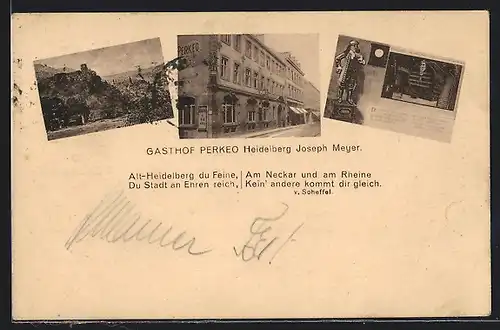 PERKEO
GASTHOF PERKEO Heidelberg Joseph Meyer.
Alt-Heidelberg du Feine,
Du Stadt an Ehren reich,
Am Neckar und am Rheine
Kein' andere kommt dir gleich.
v. Scheffel.